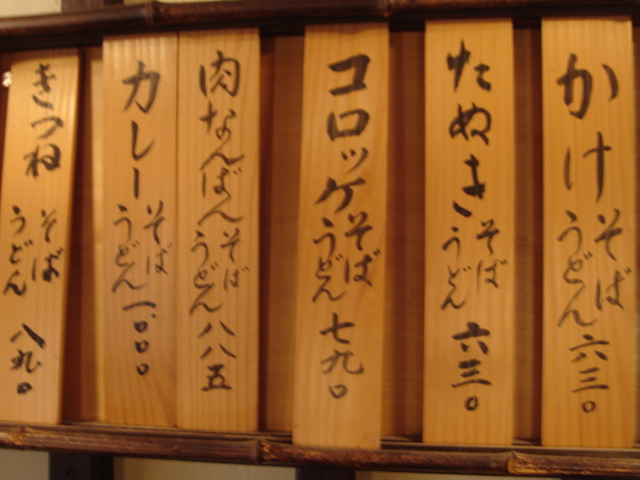 かけ そば うどん 六三〇
たぬき そば うどん 六三〇
コロッケ そば うどん 七九〇
肉なんばん そば うどん 八八五
カレー そば うどん 一、〇〇〇
きつね そば うどん 八九〇